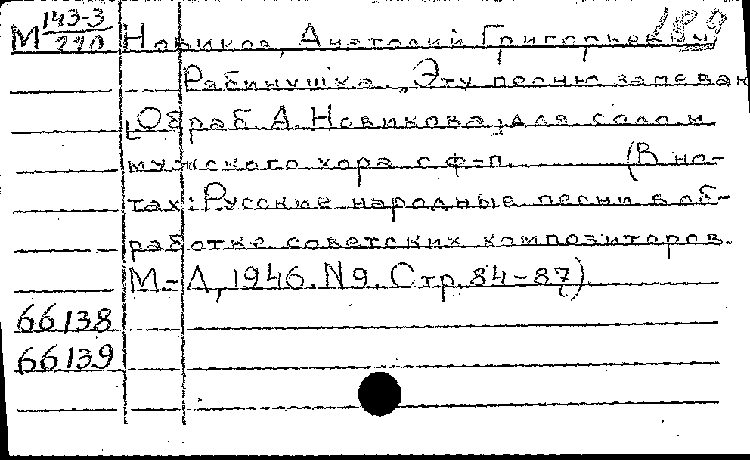 189
М 143-3/220 Новиков, Анатолий Григорьевич
Рябинушка. „Эту песню запеван
[Обраб. А. Новикова; для соло и
мужского хора с ф-п. (В но-
тах: Русские народные песни в об-
работке советских композиторов.
М.-Л., 1946. N9. Стр. 84-87)
66138
66139